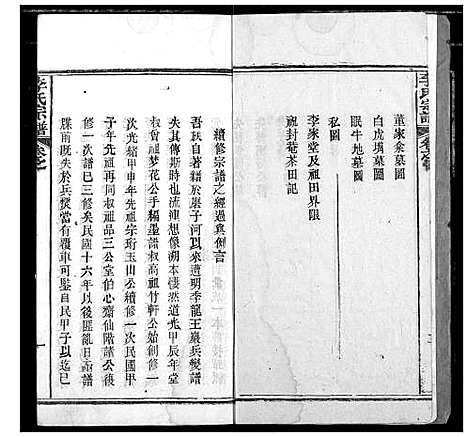 李氏宗譜
董家㘭墓圖
白虎墳墓圖
眠牛地墓圖
私圖
李家堂及祖田界限
祖封菴茶田記
李氏宗譜
續修宗譜之經過與例言
吾跃自著籍於磨子河以來遭明季龍王巖兵變譜
失其傳斯時也流連想像溯本悽然道光甲辰年堂
叔曾祖夢花公手編墨譜叔高祖竹軒公始創修一
次光緒甲申年先祖宗珩玉山公續修一次民國甲
子年先祖再同叔祖品三公堂伯心齋仙階諸公復
修一次譜已三修矣民國十六年以後匪亂日
牒前既失於兵燹當有覆車可鑒自民甲子以迄已
一